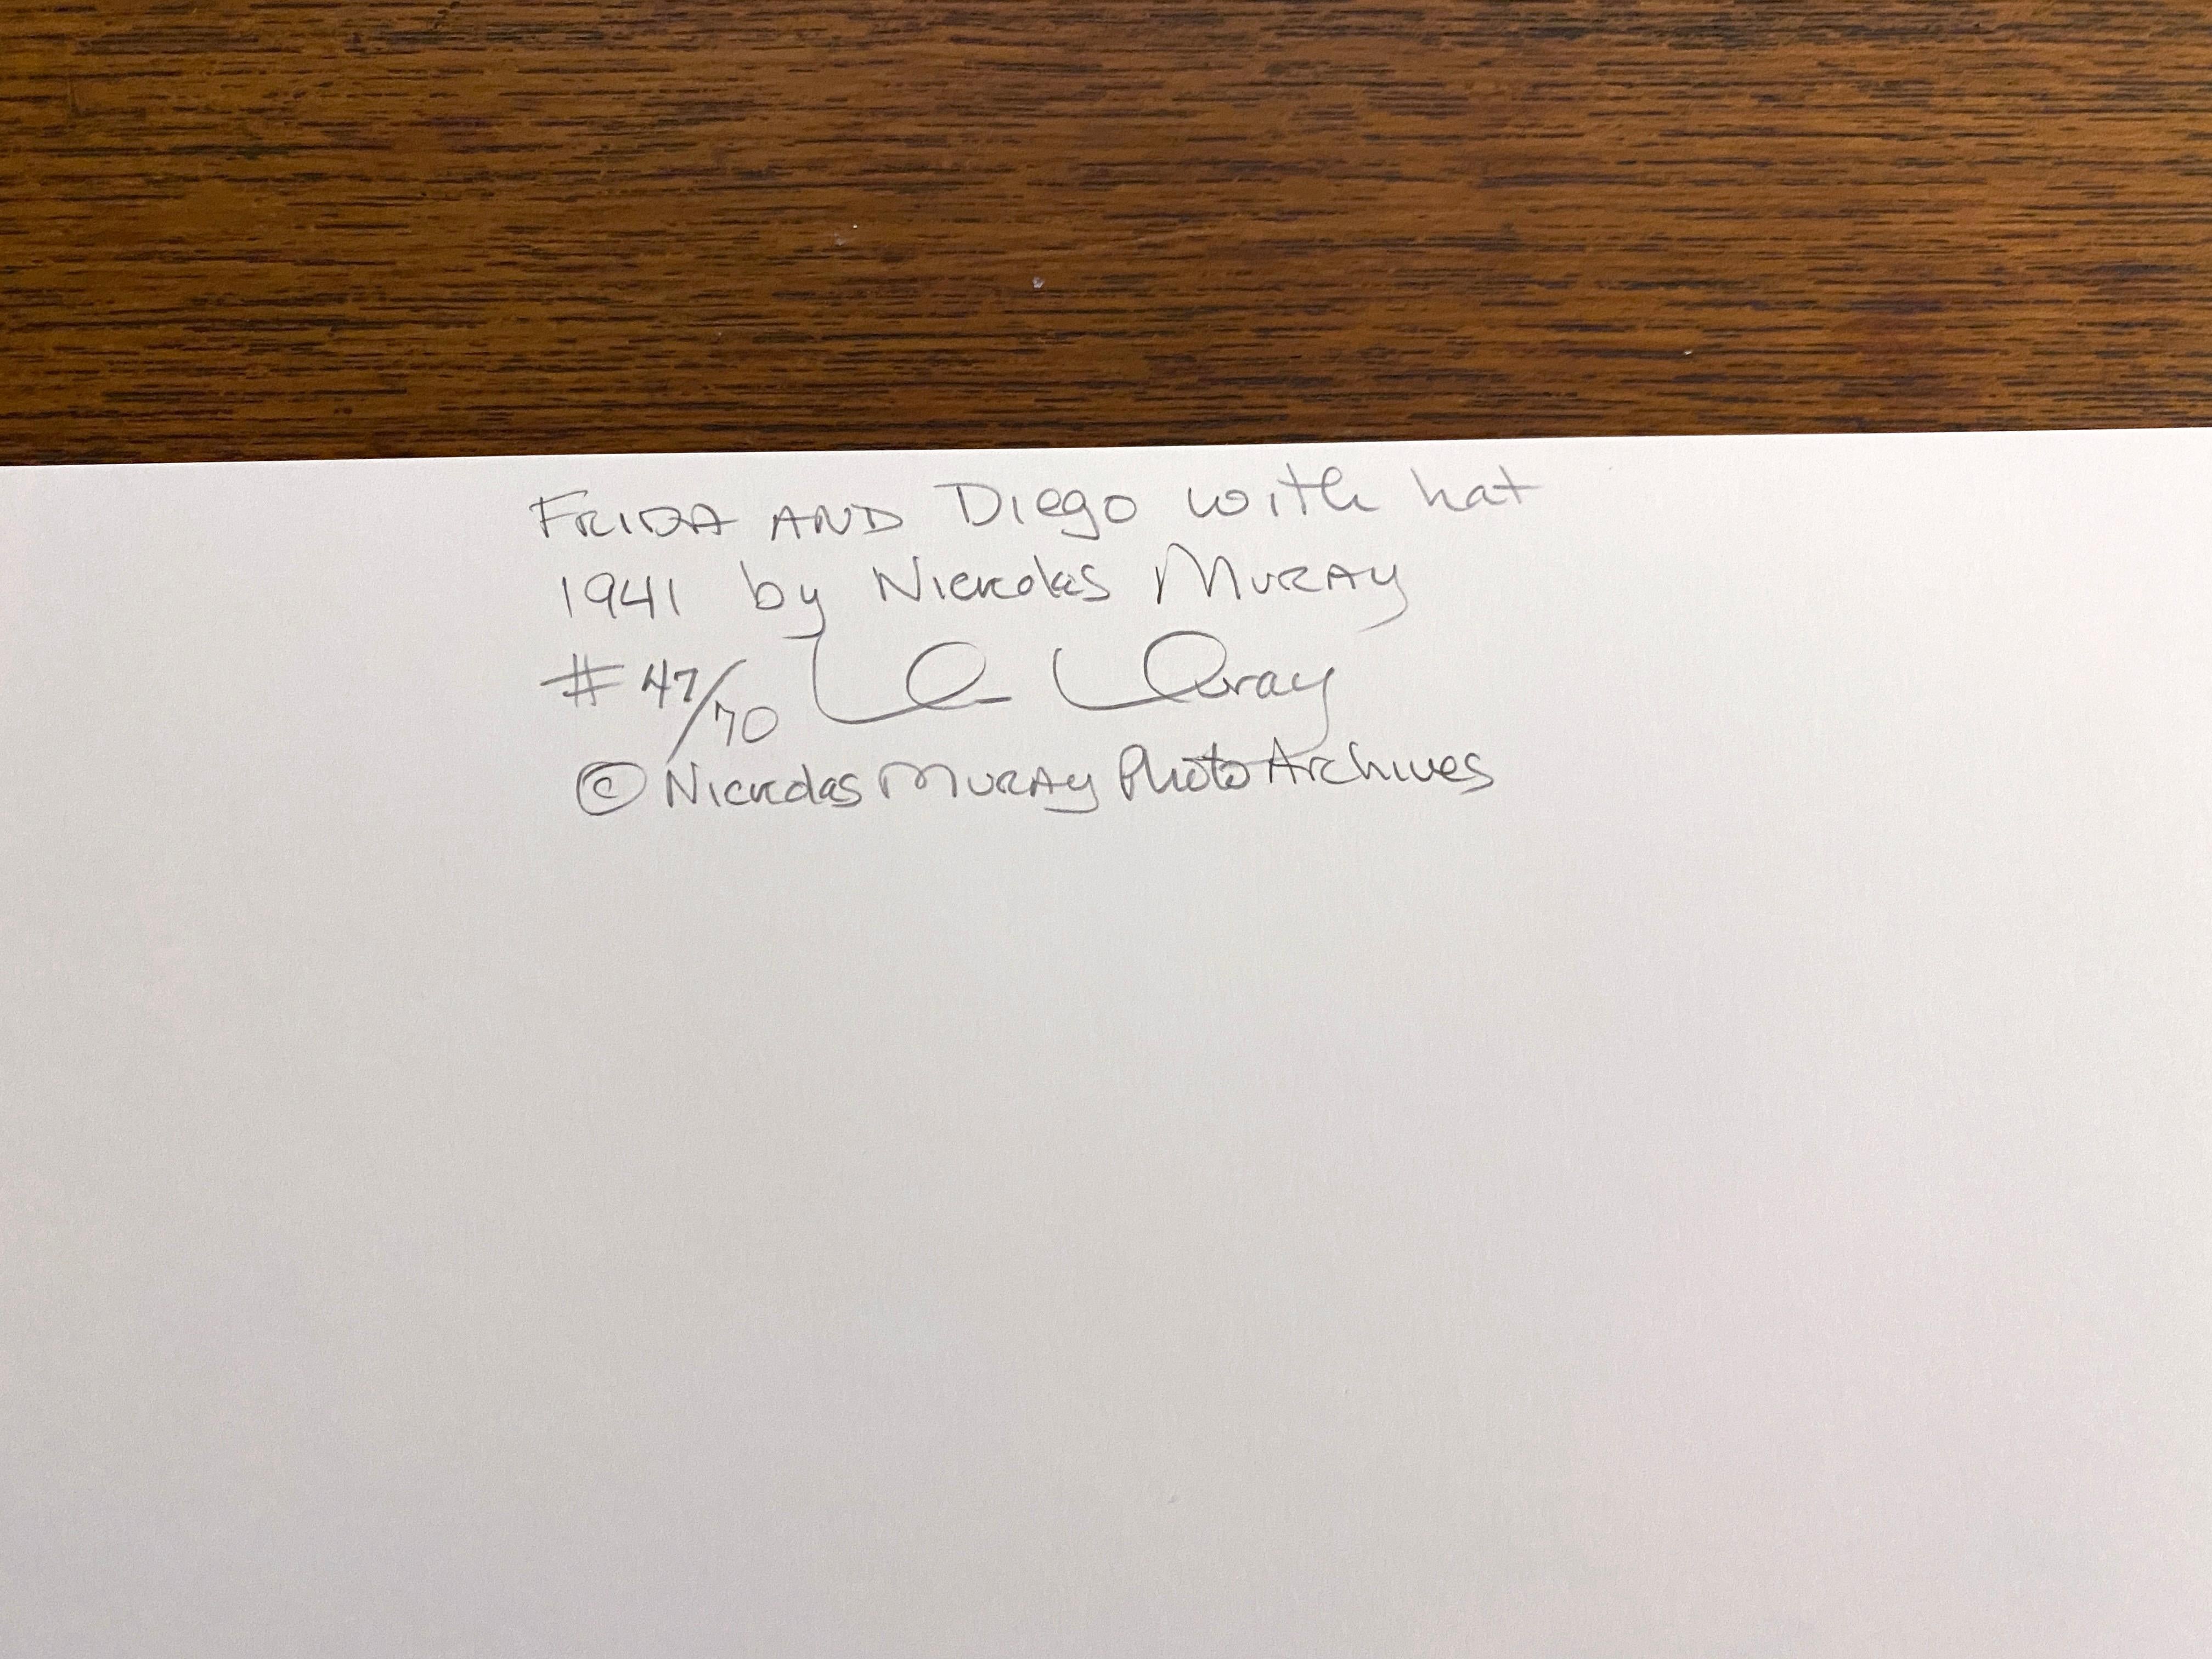 FRIDA AND Diego with hat
1941 by Nickolas Muray
#47/70 Muray
© Nickolas Muray Photo Archives